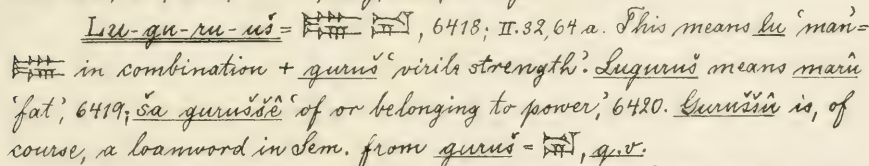 Lu-gu-ru-uš= , 6418; II. 32, 64 a. This means lu 'man'=
in combination + guruš 'virile strength'. Luguruš means marû
'fat', 6419; ša guruššê 'of or belonging to power', 6420. Guruššû is, of
course, a loanword in Sem. from guruš = , q.v.